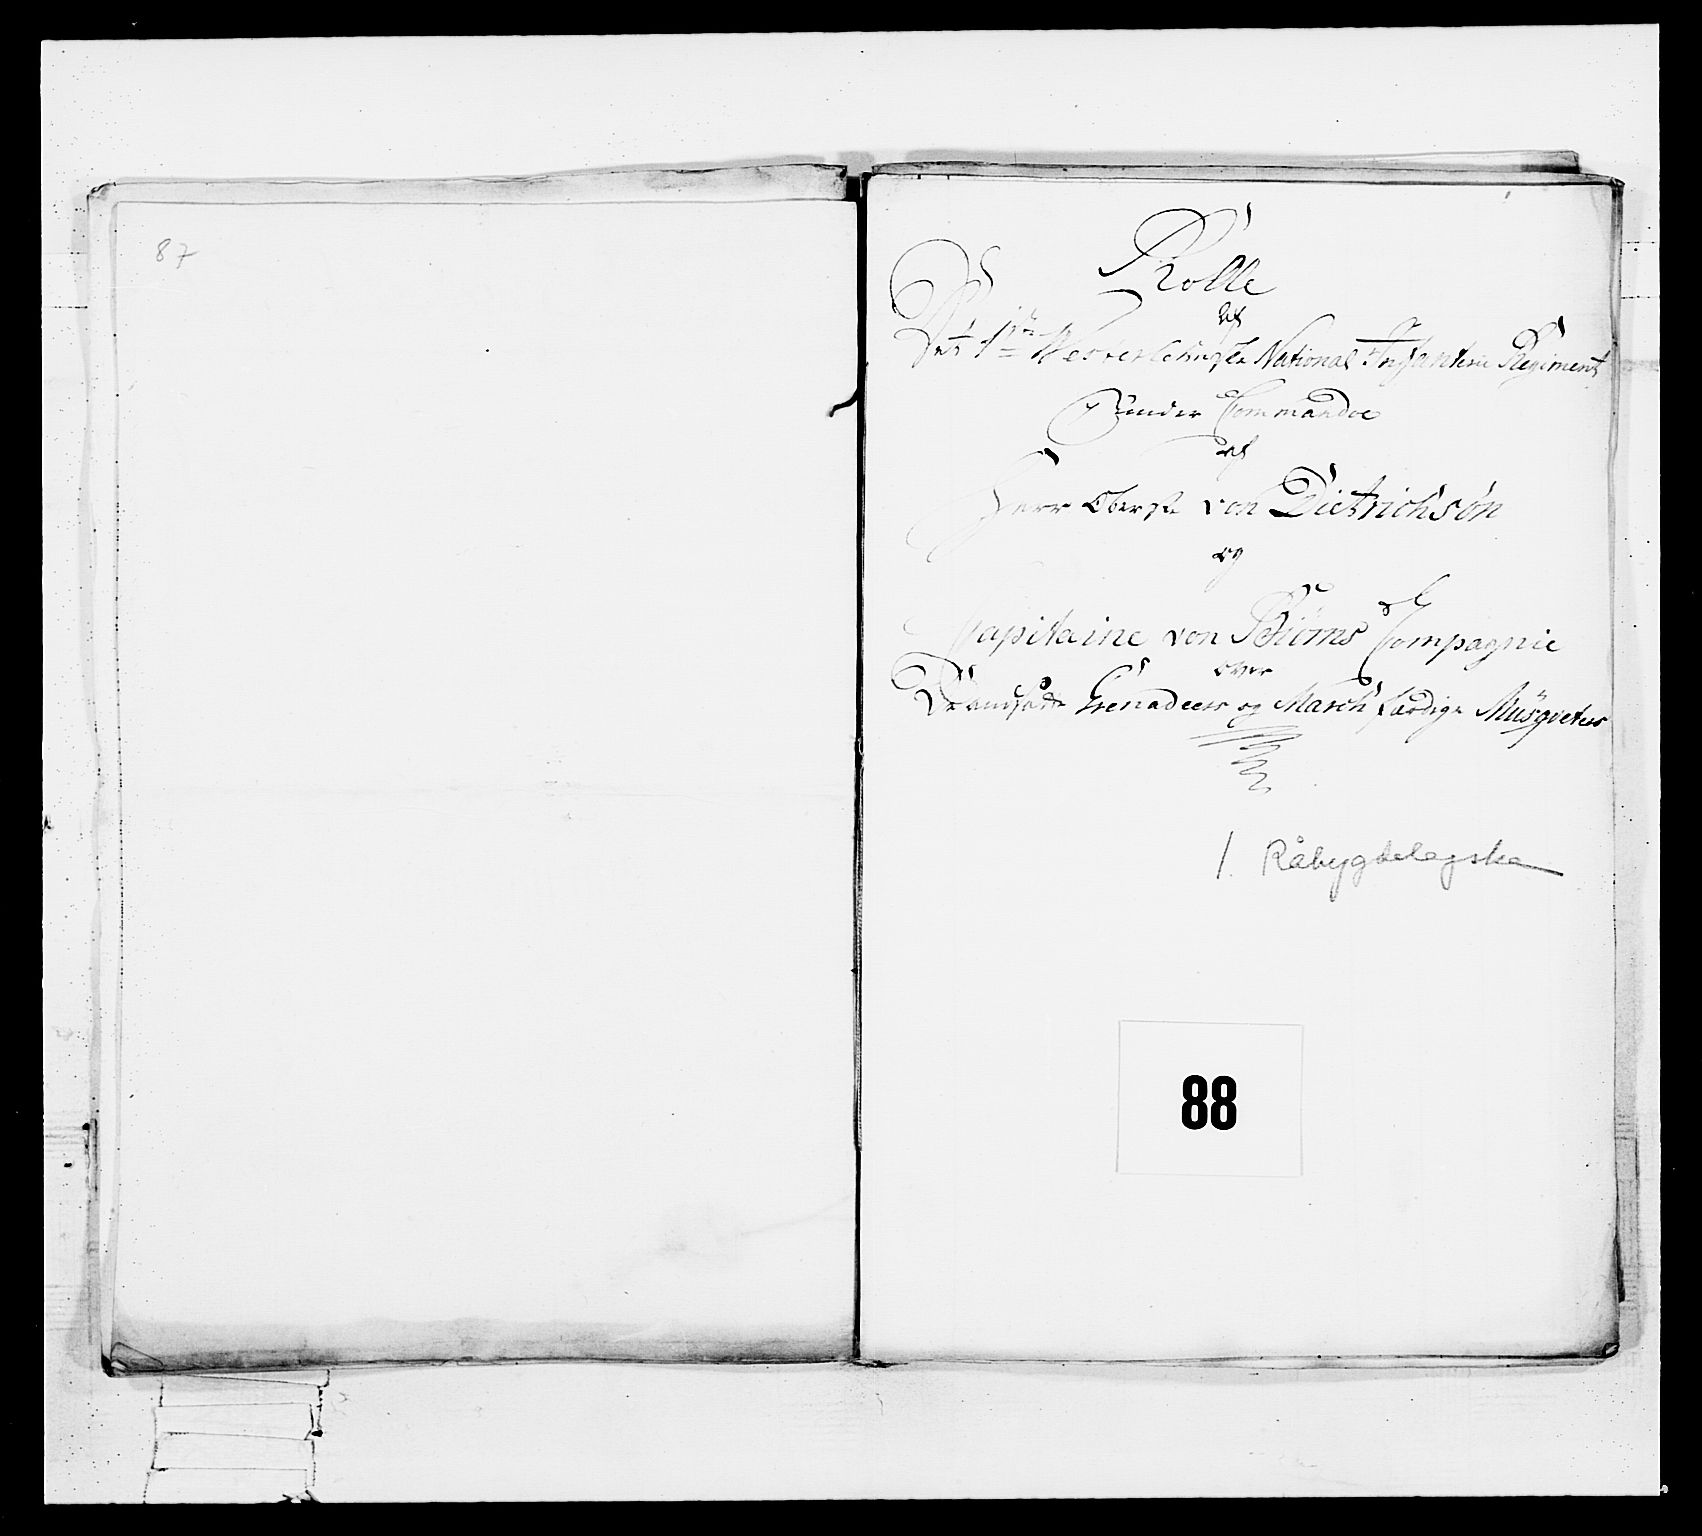 87
Rolle
Af
Det 1ste Westerlehnske National Infanterie Regiment
Under Commandoe
af
Herr Oberste von Dietrichsøn
og
Capitaine von Biørns Compagnie
over
Grenadeers og March færdige Müsqveteer
1. Råbygdelagske
88